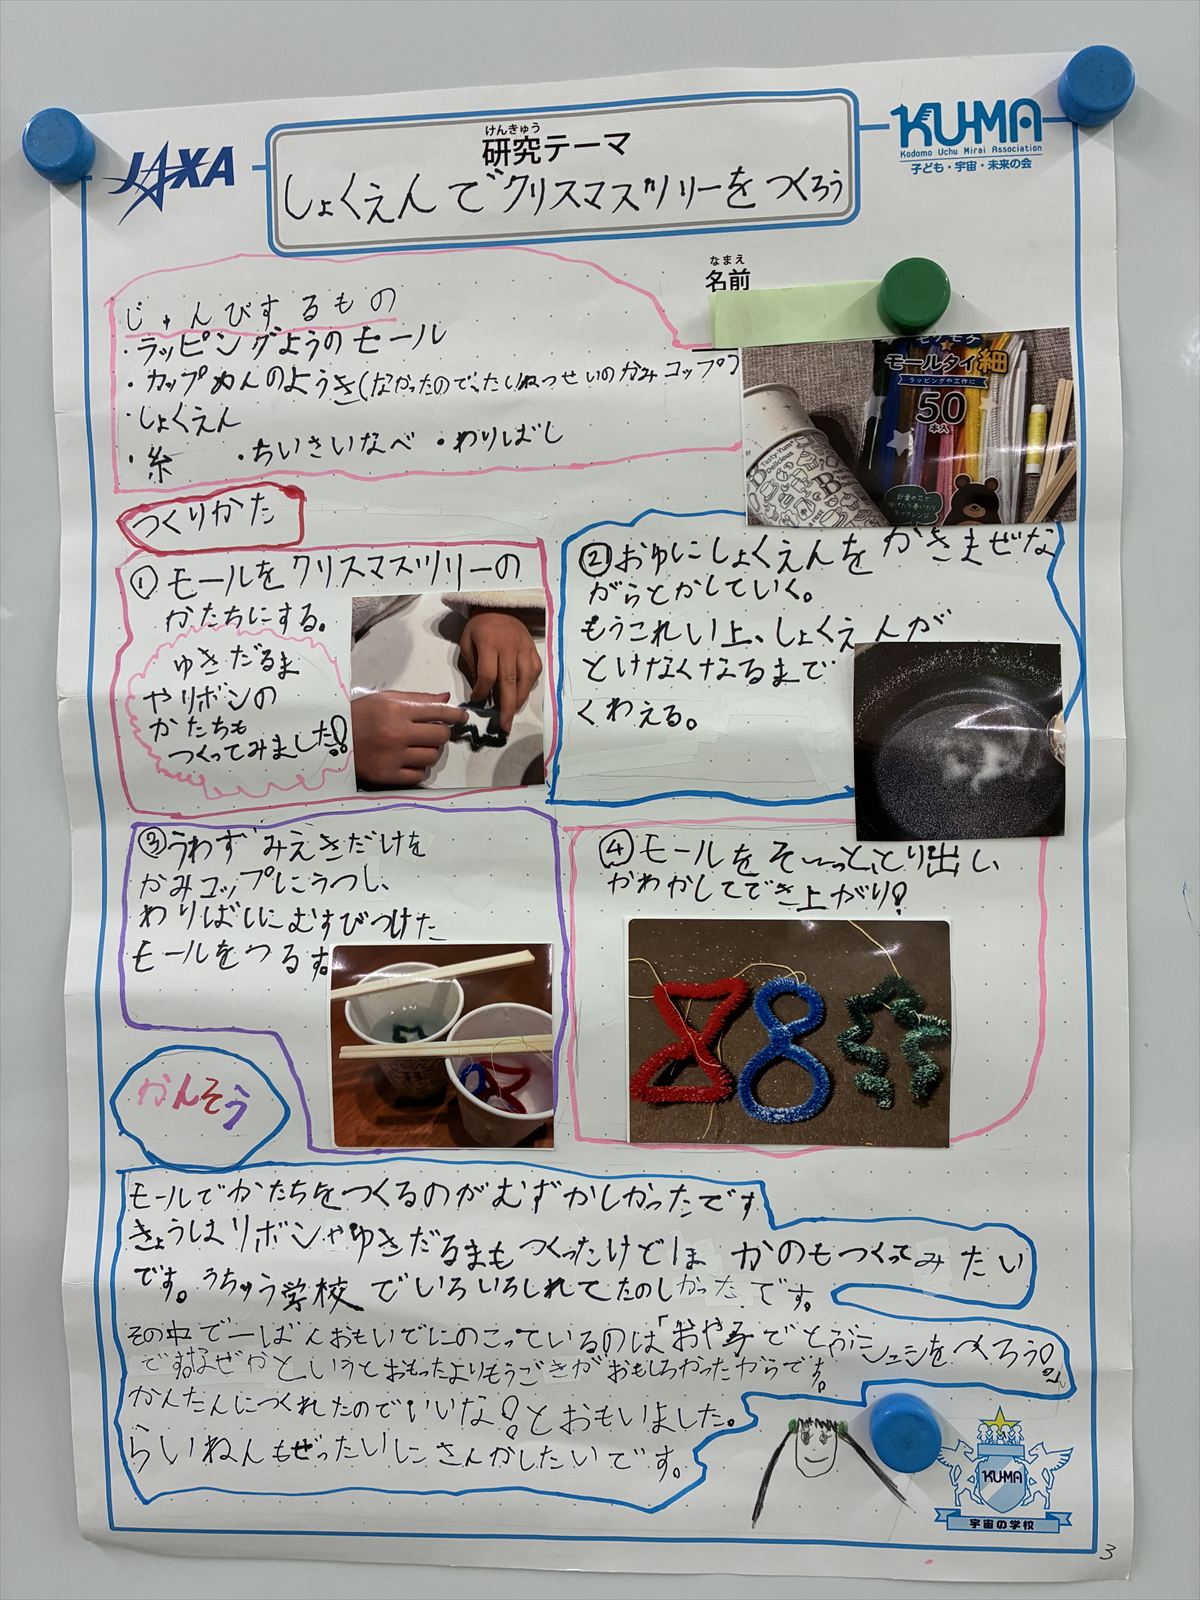 JAXA
けんきゅう
研究テーマ
しょくえんでクリスマスツリーをつくろう
KU-MA
Kodomo Uchu Mirai Association
子ども・宇宙・未来の会
なまえ
名前
じゅんびするもの
・ラッピングようのモール
・カップめんのようき(なかったので、たいねつせいのかみコップ)
・しょくえん
・糸 ・ちいさいなべ ・わりばし
モールタイ細
ラッピングや工作に
50
本入
Tasty-Yum
Delicious
つくりかた
①モールをクリスマスツリーの
かたちにする。
ゆきだるま
やリボンの
かたちも
つくってみました!
②おゆにしょくえんをかきまぜな
がらとかしていく。
もうこれい上、しょくえんが
とけなくなるまで
くわえる。
③うわずみえきだけを
かみコップにうつし、
わりばしにむすびつけた
モールをつるす。
④モールをそ〜っととり出し
かわかしてでき上がり!
かんそう
モールでかたちをつくるのがむずかしかったです
きょうはリボンやゆきだるまもつくったけどほかのもつくってみたい
です。うちゅう学校でいろいろしれてたのしかったです。
その中で一ばんおもいでにのこっているのは「おや子で
ですなぜかというとおもったよりもうごきがおもしろかったからです。
かんたんにつくれたのでいいな!とおもいました。
らいねんもぜったいにさんかしたいです。
KU-MA
宇宙の学校
3